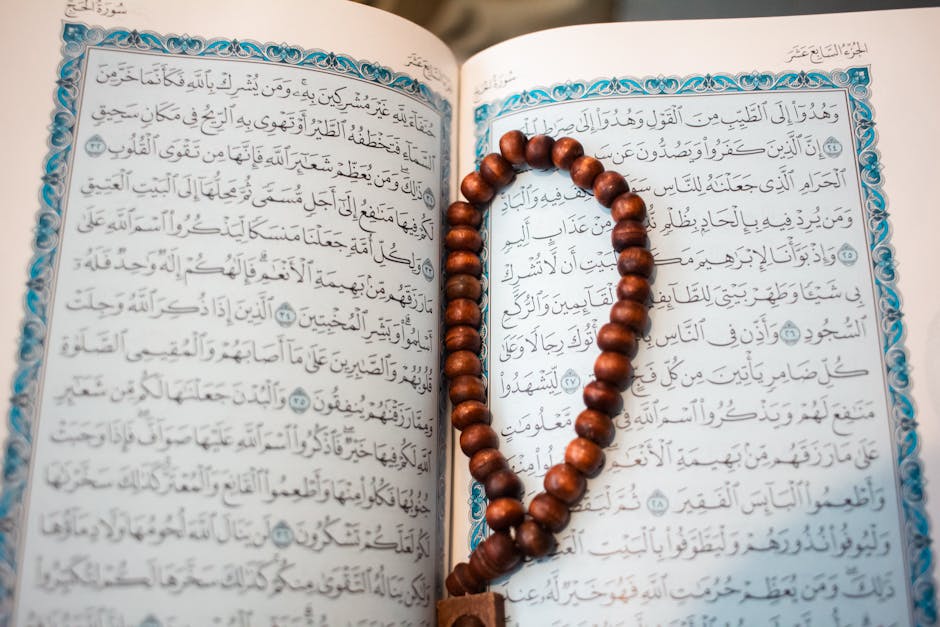 الجُزْءُ السَّابِعَ عَشَرَ
سُورَةُ الحَجِّ
وَهُدُوٓا۟ إِلَى ٱلطَّيِّبِ مِنَ ٱلْقَوْلِ وَهُدُوٓا۟ إِلَىٰ صِرَٰطِ
٢٤ إِنَّ ٱلَّذِينَ كَفَرُوا۟ وَيَصُدُّونَ عَن
ٱلْحَرَامِ ٱلَّذِى جَعَلْنَٰهُ لِلنَّاسِ فِيهِ وَٱلْبَادِ
وَمَن يُرِدْ فِيهِ بِإِلْحَادٍۭ بِظُلْمٍ مِنْ عَذَابٍ أَلِيمٍ
٢٥ وَإِذْ بَوَّأْنَا لِإِبْرَٰهِيمَ ٱلْبَيْتِ أَن لَّا تُشْرِكْ
بِى شَيْـًٔا وَطَهِّرْ بَيْتِىَ لِلطَّآئِفِينَ وَٱلْقَآئِمِينَ وَٱلرُّكَّعِ
ٱلسُّجُودِ ٢٦ وَأَذِّن فِى ٱلنَّاسِ يَأْتُوكَ رِجَالًا وَعَلَىٰ
كُلِّ ضَامِرٍ يَأْتِينَ مِن كُلِّ فَجٍّ ٢٧ لِّيَشْهَدُوا۟
مَنَٰفِعَ لَهُمْ وَيَذْكُرُوا۟ ٱسْمَ ٱللَّهِ فِىٓ مَّعْلُومَٰتٍ
عَلَىٰ مَا رَزَقَهُم مِّنۢ بَهِيمَةِ ٱلْأَنْعَٰمِ
وَأَطْعِمُوا۟ ٱلْبَآئِسَ ٱلْفَقِيرَ ٢٨ ثُمَّ
وَلْيُوفُوا۟ نُذُورَهُمْ وَلْيَطَّوَّفُوا۟ بِٱلْبَيْتِ
ذَٰلِكَ وَمَن يُعَظِّمْ حُرُمَٰتِ ٱللَّهِ فَهُوَ خَيْرٌ لَّهُۥ عِندَ
سُورَةُ الحَجِّ
حُنَفَآءَ لِلَّهِ غَيْرَ مُشْرِكِينَ بِهِۦ وَمَن يُشْرِكْ بِٱللَّهِ فَكَأَنَّمَا خَرَّ مِنَ
ٱلسَّمَآءِ فَتَخْطَفُهُ ٱلطَّيْرُ أَوْ تَهْوِى بِهِ ٱلرِّيحُ فِى مَكَانٍ سَحِيقٍ
ذَٰلِكَ وَمَن يُعَظِّمْ شَعَٰٓئِرَ ٱللَّهِ فَإِنَّهَا مِن تَقْوَى ٱلْقُلُوبِ ٣٢
لَكُمْ فِيهَا مَنَٰفِعُ إِلَىٰٓ أَجَلٍ مُّسَمًّى ثُمَّ مَحِلُّهَآ إِلَى ٱلْبَيْتِ ٱلْعَتِيقِ
٣٣ وَلِكُلِّ أُمَّةٍ جَعَلْنَا مَنسَكًا لِّيَذْكُرُوا۟ ٱسْمَ ٱللَّهِ عَلَىٰ
مَا رَزَقَهُم مِّنۢ بَهِيمَةِ ٱلْأَنْعَٰمِ فَإِلَٰهُكُمْ إِلَٰهٌ وَٰحِدٌ فَلَهُۥٓ
أَسْلِمُوا۟ وَبَشِّرِ ٱلْمُخْبِتِينَ ٣٤ ٱلَّذِينَ إِذَا ذُكِرَ ٱللَّهُ وَجِلَتْ
قُلُوبُهُمْ وَٱلصَّٰبِرِينَ عَلَىٰ مَآ أَصَابَهُمْ وَٱلْمُقِيمِى ٱلصَّلَوٰةِ
وَمِمَّا رَزَقْنَٰهُمْ يُنفِقُونَ ٣٥ وَٱلْبُدْنَ جَعَلْنَٰهَا لَكُم مِّن شَعَٰٓئِرِ
ٱللَّهِ لَكُمْ فِيهَا خَيْرٌ فَٱذْكُرُوا۟ ٱسْمَ ٱللَّهِ عَلَيْهَا صَوَآفَّ فَإِذَا وَجَبَتْ
جُنُوبُهَا فَكُلُوا۟ مِنْهَا وَأَطْعِمُوا۟ ٱلْقَانِعَ وَٱلْمُعْتَرَّ كَذَٰلِكَ سَخَّرْنَٰهَا
لَكُمْ لَعَلَّكُمْ تَشْكُرُونَ ٣٦ لَن يَنَالَ ٱللَّهَ لُحُومُهَا وَلَا دِمَآؤُهَا
وَلَٰكِن يَنَالُهُ ٱلتَّقْوَىٰ مِنكُمْ كَذَٰلِكَ سَخَّرَهَا لَكُمْ لِتُكَبِّرُوا۟